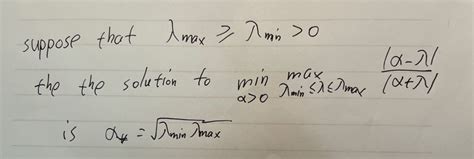 suppose that λmax ⩾ λmin > 0
the the solution to min α>0 max λmin ≤ λ ≤ λmax |α-λ| / |α+λ|
is α* = √(λmin λmax)